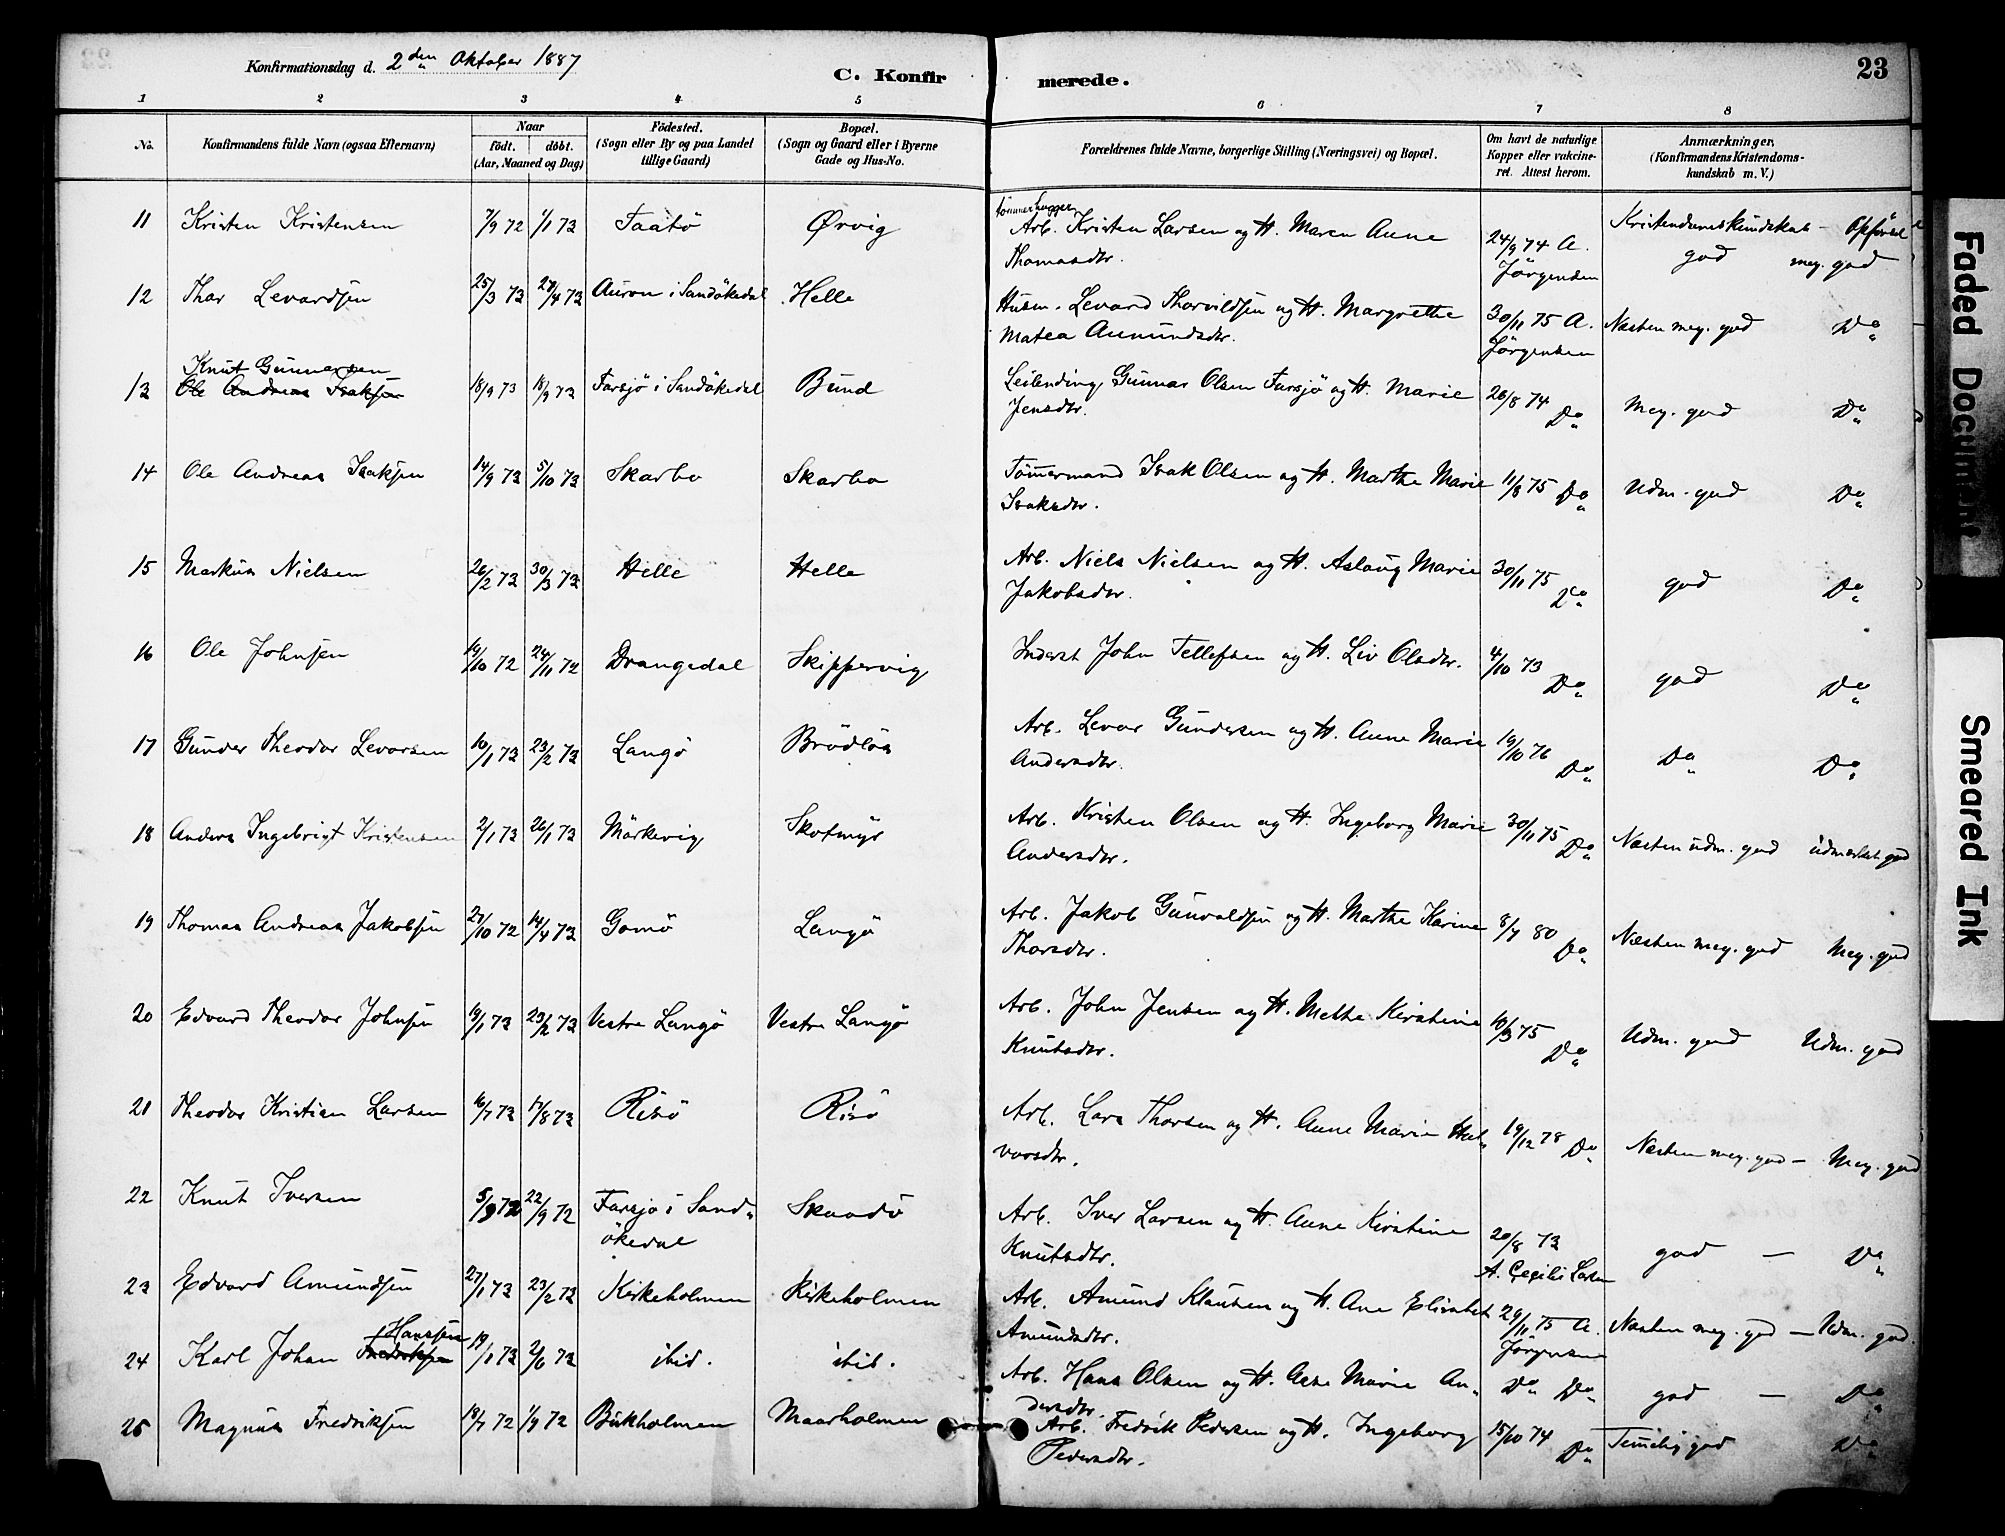 Konfirmationsdag d. 2den Oktober 1887
C. Konfirmerede.
23
1 2 3 4 5 6 7 8
No. Konfirmandens fulde Navn (ogsaa Efternavn) Naar födt. döbt. (Aar, Maaned og Dag) Födested. (Sogn eller By og paa Landet tillige Gaard) Bopæl. (Sogn og Gaard eller i Byerne Gade og Hus-No. Forældrenes fulde Navne, borgerlige Stilling (Næringsvei) og Bopæl. Om havt de naturlige Kopper eller vakcineret. Attest herom. Anmærkninger, (Konfirmandens Kristendomskundskab m. V.)
tømmerhugger
11 Kristen Kristensen 7/9 72 1/1 73 Taatö Ørvig Arb. Kristen Larsen og H. Maren Anne 24/9 74 A. Kristendomskundskab - Opførsel
Thomasdtr. Jörgensen god meg. god
12 Thor Levardsen 25/3 73 27/4 73 i Sandökedal Helle Husm. Levard Thorvildsen og H. Margrethe 30/11 75 A. Næsten meg. god Do
Matea Aanundsdtr. Jörgensen
Knut Gunnersen
13 Ole Andreas Isaksen 18/9 73 18/9 73 Farsjö i Sandökedal Bund Leilending Gunnar Olsen Farsjö og H. Marie 26/8 74 Do Meg. god Do
Jensdtr.
14 Ole Andreas Isaksen 14/9 73 5/10 73 Skarbo Skarbo Tömmermand Isak Olsen og H. Marthe Marie 11/8 75 Do Udm. god Do
Isaksdtr.
15 Markus Nielsen 26/2 73 30/3 73 Helle Helle Arb. Niels Nielsen og H. Aslaug Marie 30/11 75 Do god Do
Jakobsdtr.
16 Ole Johnsen 19/10 72 24/11 72 Drangedal Skippervig Inderst John Tellefsen og H. Liv Olsdtr. 4/10 73 Do god Do
17 Gunder Theodor Levorsen 10/1 73 23/2 73 Langö Brödlös Arb. Levor Gundersen og H. Anne Marie 19/10 76 Do Do Do
Andersdtr.
18 Anders Ingebrigt Kristensen 2/1 73 26/1 73 Mörkevig Skotmyr Arb. Kristen Olsen og H. Ingeborg Marie 30/11 75 Do Næsten udm. god udmærket god
Andersdtr.
19 Thomas Andreas Jakobsen 27/10 72 14/4 73 Gomö Langö Arb. Jakob Gunvaldsen og H. Marthe Karine 8/7 80 Do Næsten meg. god Meg. god
Thorsdtr.
20 Edvard Theodor Johnsen 19/1 73 23/2 73 Vestre Langö Vestre Langö Arb. John Jensen og H. Methe Kirstine 10/9 75 Do Udm. god Udm. god
Knutsdtr.
21 Theodor Kristian Larsen 16/7 73 17/8 73 Risö Risö Arb. Lars Thorsen og H. Anne Marie Hal- 19/12 78 Do Næsten meg. god - Meg. god
vorsdtr.
22 Knut Iversen 5/9 72 22/9 72 Farsjö i Sand- Skaadö Arb. Iver Larsen og H. Anne Kirstine 20/8 73 god - Do
ökedal Knutsdtr. A. Larsen
23 Edvard Amundsen 27/1 73 23/2 73 Kirkeholmen Kirkeholmen Arb. Amund Klausen og H. Ane Elisabet 26/11 75 A. Næsten meg. god - Udm. god
Amundsdtr. Jörgensen
Hanssen
24 Karl Johan Fredriksen 19/1 73 2/6 73 ibid. ibid. Arb. Hans Olsen og H. Aase Marie An- Do Do god - Do
dersdtr.
25 Magnus Fredriksen 18/7 72 1/9 72 Birkholmen Maarholmen Arb. Fredrik Pedersen og H. Ingeborg 15/10 74 Do Temmelig god Do
Pedersdtr.
Faded Document
Smeared Ink